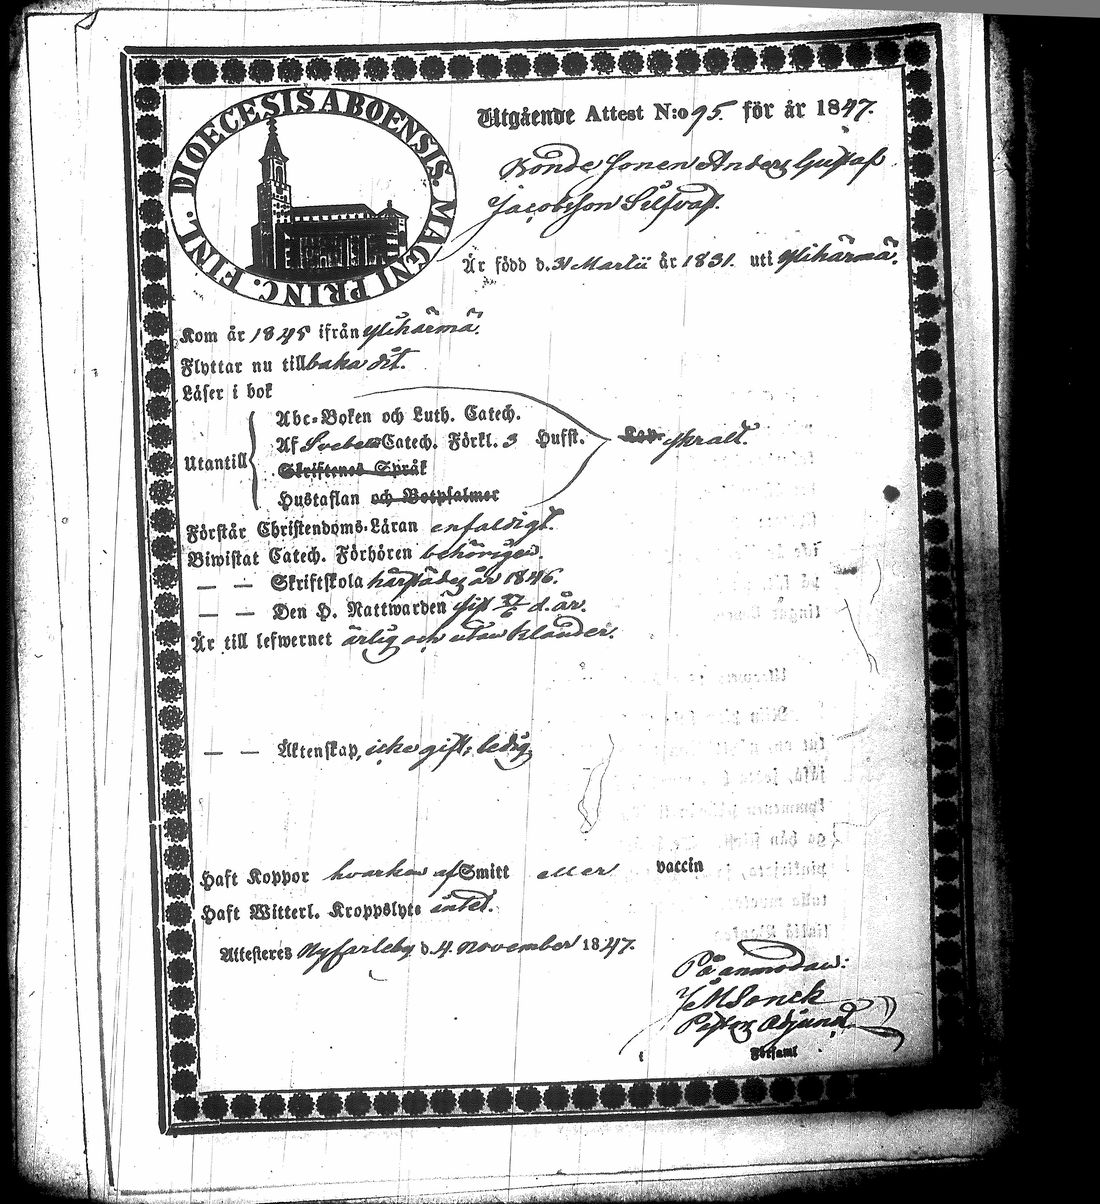 DIOECESIS ABOENSIS. MAGNI PRINC. FINL.
Utgående Attest N:o 95. för år 1847.
Bonde Sonen Anders Gustaf
Jacobsson Silfvast.
Är född d. 31 Martii år 1831. uti Ylihärmä.
Kom år 1845 ifrån Ylihärmä.
Flyttar nu tillbaka dit.
Läser i bok
Abc-Boken och Luth. Catech.
Af Svebelii Catech. Förkl. 3 Hufst.
Utantill
Skriftenes Språk
Hustaflan och Botpsalmer
Förstår Christendoms-Läran enfaldigt.
Biwistat Catech. Förhören behörigen.
— — Skriftskola härstädes år 1846.
— — Den H. Nattwarden sist d. år.
Är till lefwernet ärlig och utan klander.
— — Äktenskap, icke gift; ledig
Haft Koppor hvarken af Smitt eller vaccin
Haft Witterl. Kroppslyte intet.
Attesteres Nykarleby d. 4. November 1847.
På anmodan:
Past. Adjunct
Församl